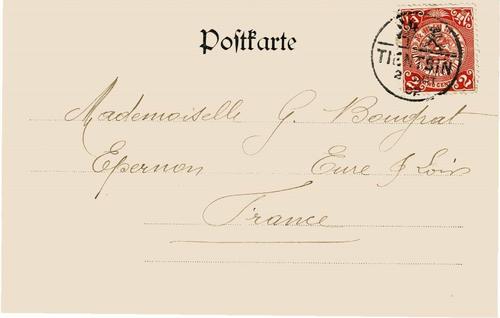 Postkarte
TIENTSIN
Mademoiselle G. Bougrat
Epernon Eure & Loir
France